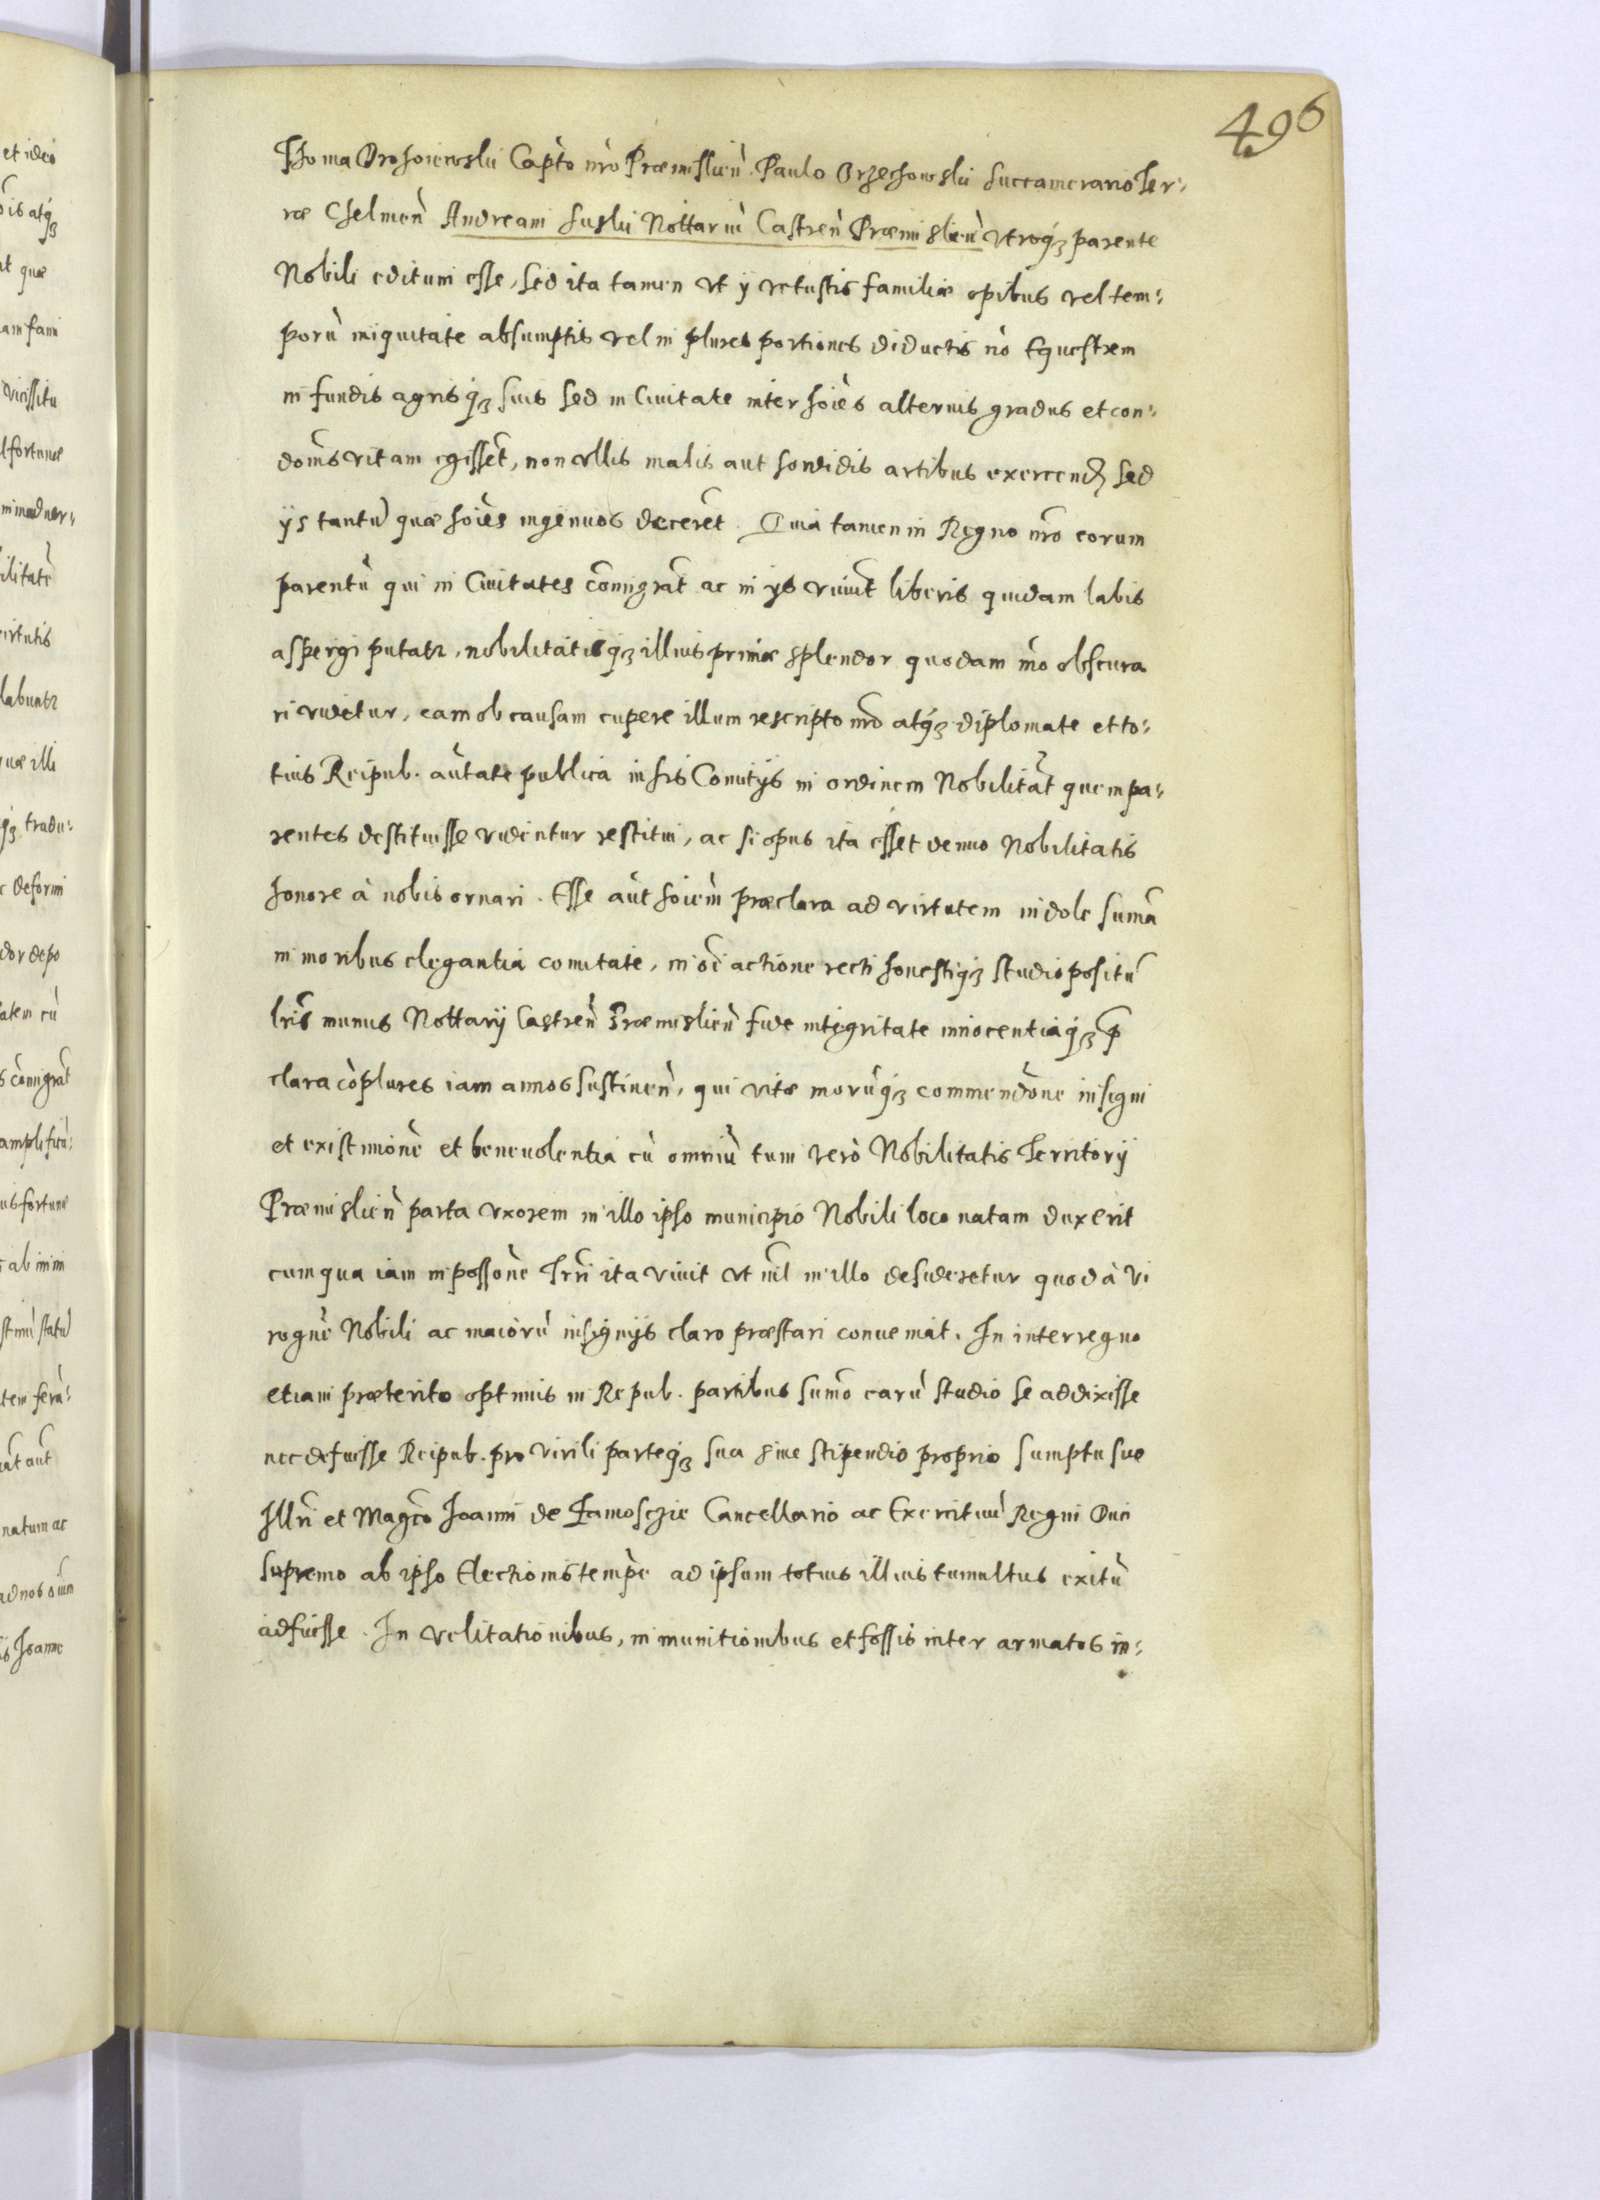 496
Thoma Drohoiewski Capto nro Præmislien. Paulo Orzechowski Succamerario Ter-
ræ Chelmen Andream Suski Nottariu Castren Præmislien utroq; parente
Nobili editum esse, sed ita tamen ut ij vetustis familiæ opibus vel tem-
poru iniquitate absumptis vel in plures portiones diductis no Equestrem
in fundis agrisq; suis sed in Civitate inter hoies alternis gradus et con-
domis vitam egisset, non ullis malis aut sordidis artibus exercend sed
ijs tantu quæ hoies ingenuos deceret. Quia tamen in Regno nro eorum
parentu qui in Civitates comigrat ac in ijs vivut liberis quidam labis
aspergi putatr, nobilitatisq; illius primæ splendor quodam mo obscura
ri videtur, eam ob causam cupere illum rescripto nro atq; diplomate et to-
tius Reipub. autate publica in his Comitijs in ordinem Nobilitat quem pa-
rentes destituisse videntur restitui, ac si opus ita esset denuo Nobilitatis
honore à nobis ornari. Esse aut hoiem præclara ad virtutem indole suma
in moribus elegantia comitate, in oi actione recti honestiq; studio positu
hris munus Nottarij Castren Præmislien fide integritate innocentiaq; p
clara coplures iam annos sustinen, qui vitæ moruq; commendone insigni
et existimione et benevolentia cu omniu tum vero Nobilitatis Territorij
Præmislien parta uxorem in illo ipso municipio Nobili loco natam duxerit
cum qua iam in possone Trri ita vivit ut nil in illo desideretur quod à vi
rogne Nobili ac maioru insignijs claro præstari conveniat. In interregno
etiam præterito optimis in Repub. partibus sumo earu studio se addixisse
nec defuisse Reipub. pro virili parteq; sua sine stipendio proprio sumptu suo
Illri et Magco Joanni de Zamosczie Cancellario ac Exercituu Regni Duci
supremo ab ipso Electionis tempe ad ipsum totius illius tumultus exitu
adfuisse. In velitationibus, in munitionibus et fossis inter armatos in-